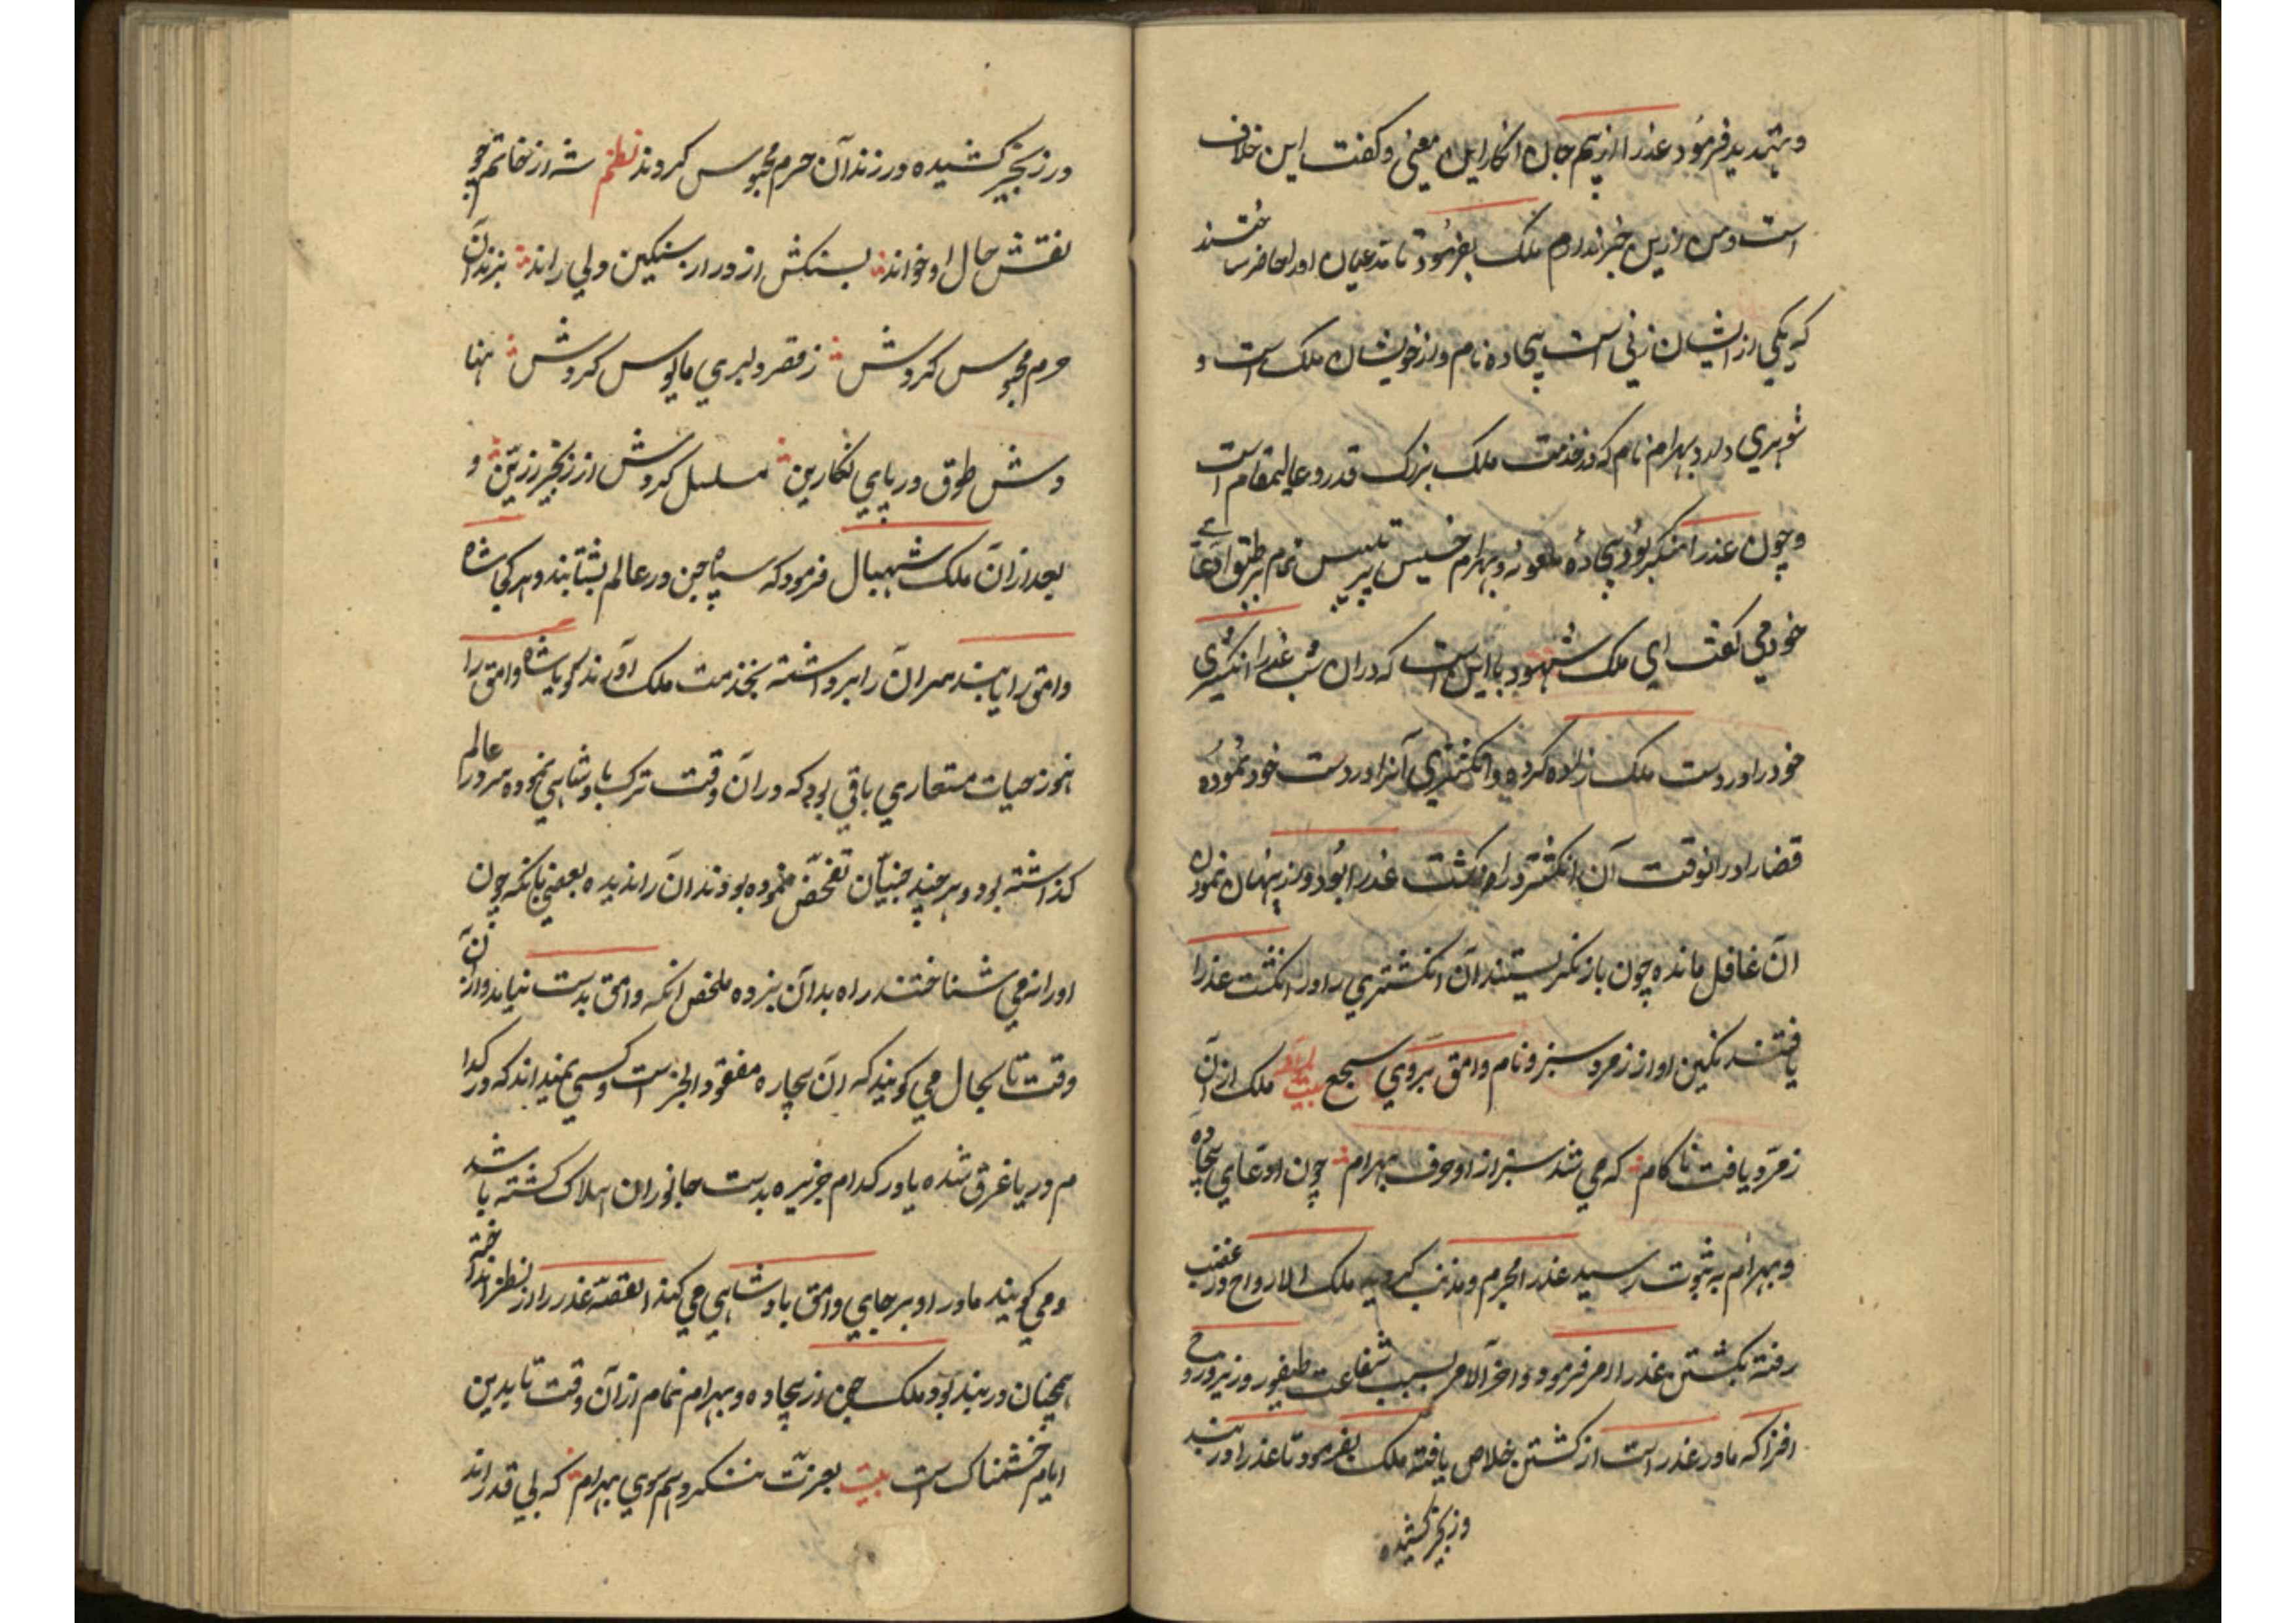 وتهدید فرمود عذرا از بیم جان انکار این معنی و کفت این خلاف
است و من ازین خبر ندارم ملک بفرمود تا مدعیان او را حاضر ساختند
که یکی از ایشان زنی است بیجاده نام و از خویشان ملک است و
شوهری دارد بهرام نام که در خدمت ملک بزرک قدر و عالیمقام است
و چون عذرا منکر بود بیجاده ملعونه و بهرام خسیس تمام بر طبق ادعای
خود می کفت ای ملک شهود ما این است که دران شب عذرا انکشتری
خود را در دست ملک زاده کرده و انکشتری آنرا در دست خود نموده
قضا را در انوقت آن انکشتری در انکشت عذرا بود و از پنهان نمودن
آن غافل مانده چون باز نکریستند آن انکشتری را در انکشت عذرا
یافتند نکین او از زمرد سبز و نام وامق بروی سجع بیت ملک از آن
زمرد یافت ناکام که می شد سبز از او حرف بهرام چون ادعای بیجاده
و بهرام به ثبوت رسید عذرا مجرم و مذنب کردید ملک الارواح در غضب
رفته بکشتن عذرا امر فرمود و اخر الامر بسبب شفاعت طیفور وزیر و روح
افزا که مادر عذر است از کشتن خلاص یافته ملک بفرمود تا عذرا در بند
و زنجیر کشیده
و زنجیر کشیده در زندان حرم محبوس کردند نظم شه از خاتم چو
نقش حال او خواند بسنکش از در ار سنکین دلی راند بزندان
حرم محبوس کردش ز قصر دلبری مایوس کردش نها
دش طوق در پای نکارین مسلسل کردش از زنجیر زرین و
بعد ازان ملک شهبال فرمود که سپاه جن در عالم بشتابند و هر کجا شاه
وامق را یابند سر آن را برداشته بخدمت ملک آورند کویا شاه وامق را
هنوز حیات مستعاری باقی بود که در آن وقت ترک پادشاهی نموده سر در عالم
کذاشته بود و هر چند جنیان تفحص نموده بودند آن را ندیده یعنی بانکه چون
او را نمی شناختند راه بدآن نبرده ملخص انکه وامق بدست نیامد و از آن
وقت تا بحال می کویند که آن بیچاره مفقود الخبر است و کسی نمیداند که در کدا
م دریا غرق شده یا در کدام جزیره بدست جانوران هلاک کشته باشد
و می کویند مادر او بر جای وامق پادشاهی می کند القصه عذرا را از نظر انداخته
همچنان در بند بود ملک جن از بیجاده و بهرام تمام از آن وقت تا بدین
ایام خشمناک است بیت بعزت ننکرد هم سوی بهرام که بی قدر اند